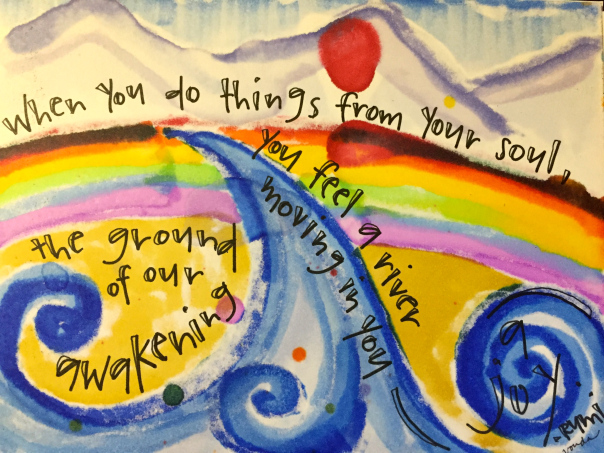 When you do things from your soul,
you feel a river
moving in you
a
joy.
-Rumi
the ground
of our
awakening